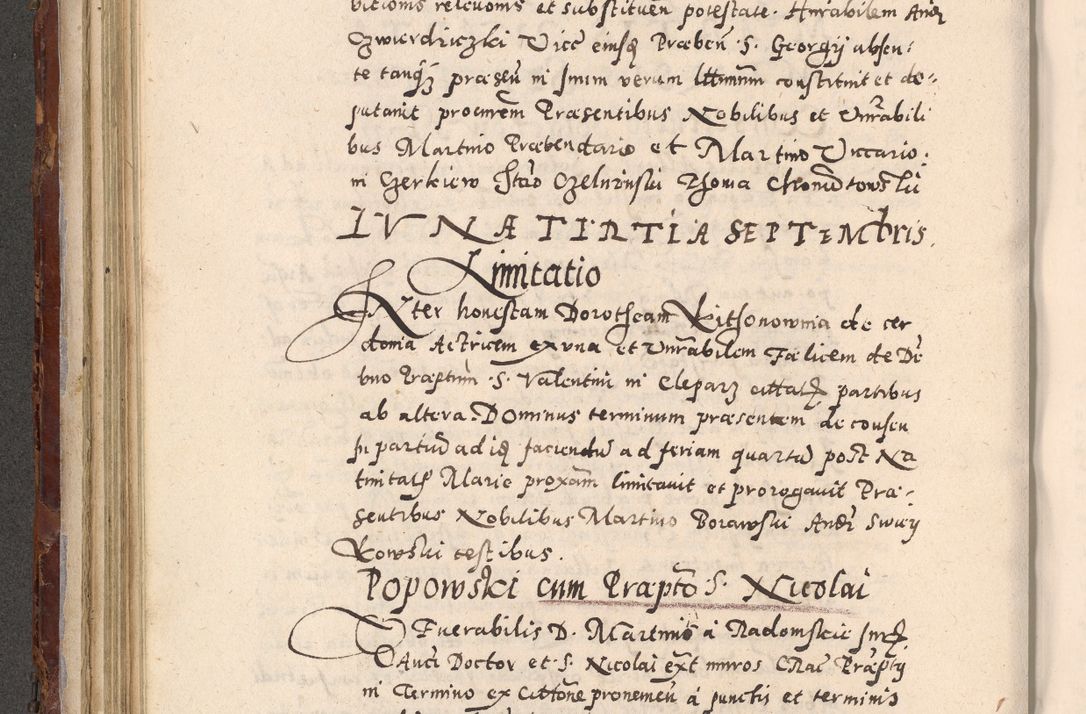 bitioms relevoms et substituen potestate. Hnrabilem Andr
Czwierdziczki Vice eiusq Præben S. Georgÿ absen:
te tanq præsen in smum verum lttmum constituit et de-
putavit procurem Præsentibus Nobilibus et Vnrabili
bus Martino Præbendario et Martino Viccario
in Czerkiew Stao Czelninski Thoma Chomutowski
LVNA TERTIA SEPTEMbris.
Limitatio
Inter honestam Dorotheam Kitsonowna de cer
donia Actricem ex vna et Vnrabilem Fælicem de De
bno Præptum S. Valentini in Cleparz cittat partibus
ab altera Dominus terminum præsentem de consen
su partiu ad id faciendu ad feriam quartu post Na
tiuitats Marie proxam limitavit et prorogavit Præ-
sentibus Nobilibus Martino Borawski Andr Swiey
kowski testibus.
Popowski cum Præpto S. Nicolai
Venerabilis D. Martinus á Radomskie Sme
D Auci Doctor et S. Nicolai ext muros Crac Præpty
in Termino ex Cittone pronemen á punctis et terminis